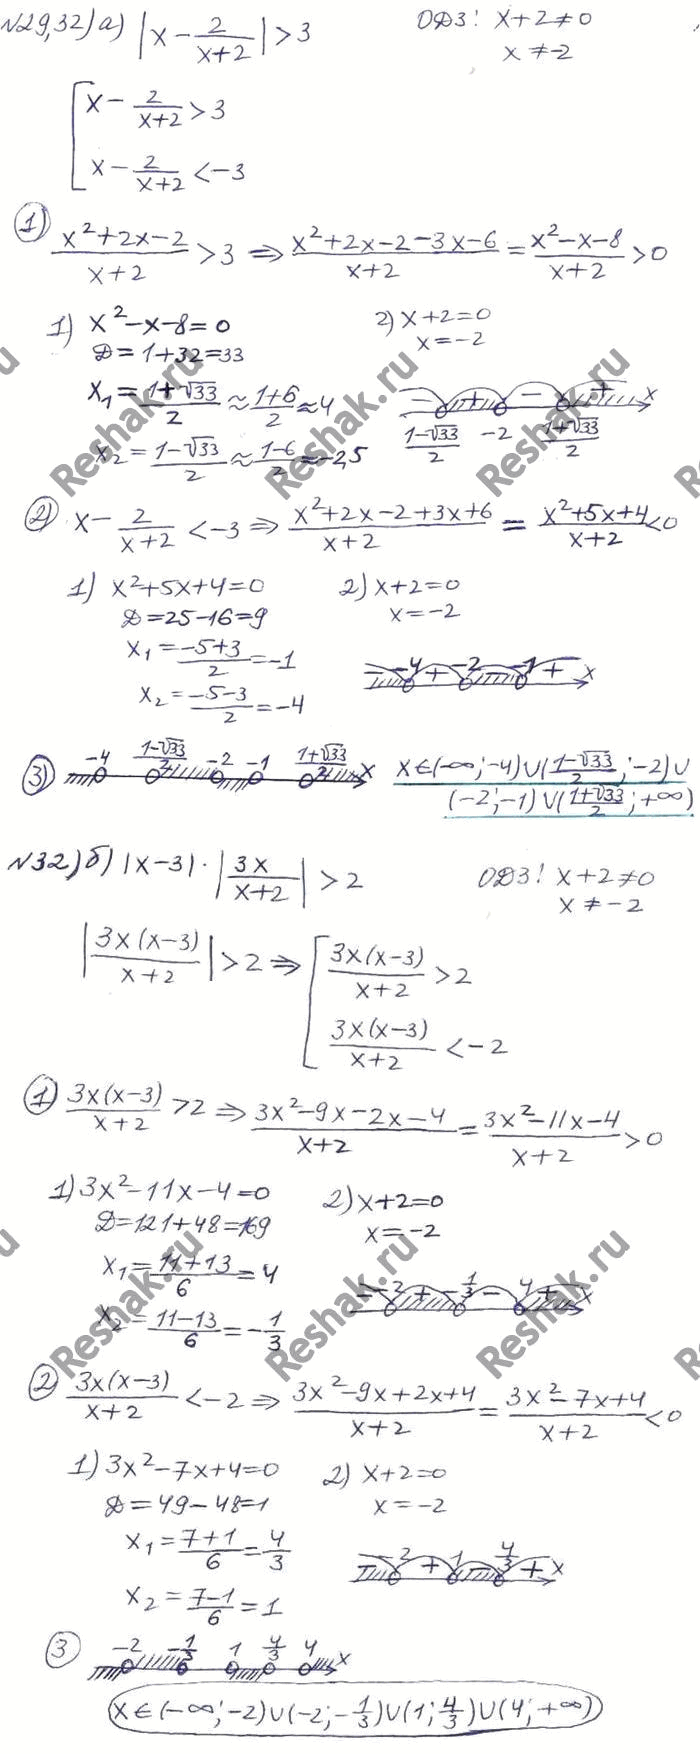 №29,32) а) |x - 2/(x+2)| > 3    ОДЗ! x+2≠0
x≠-2
[ x - 2/(x+2) > 3
x - 2/(x+2) < -3
① (x²+2x-2)/(x+2) > 3 ⇒ (x²+2x-2-3x-6)/(x+2) = (x²-x-8)/(x+2) > 0
1) x²-x-8=0    2) x+2=0
Д=1+32=33    x=-2
x₁=(1+√33)/2 ≈ (1+6)/2 ≈ 4    - + - + x
x₂=(1-√33)/2 ≈ (1-6)/2 = -2,5    (1-√33)/2  -2  (1+√33)/2
② x - 2/(x+2) < -3 ⇒ (x²+2x-2+3x+6)/(x+2) = (x²+5x+4)/(x+2) < 0
1) x²+5x+4=0    2) x+2=0
Д=25-16=9    x=-2
x₁=(-5+3)/2=-1    - -4 + -2 -1 + x
x₂=(-5-3)/2=-4
③ -4  (1-√33)/2  -2  -1  (1+√33)/2  x    x∈(-∞;-4)∪((1-√33)/2;-2)∪
(-2;-1)∪((1+√33)/2;+∞)
№32) б) |x-3|·|3x/(x+2)| > 2    ОДЗ! x+2≠0
x≠-2
|3x(x-3)/(x+2)| > 2 ⇒ [ 3x(x-3)/(x+2) > 2
3x(x-3)/(x+2) < -2
① 3x(x-3)/(x+2) > 2 ⇒ (3x²-9x-2x-4)/(x+2) = (3x²-11x-4)/(x+2) > 0
1) 3x²-11x-4=0    2) x+2=0
Д=121+48=169    x=-2
x₁=(11+13)/6=4    - -2 + -1/3 - 4 + x
x₂=(11-13)/6=-1/3
② 3x(x-3)/(x+2) < -2 ⇒ (3x²-9x+2x+4)/(x+2) = (3x²-7x+4)/(x+2) < 0
1) 3x²-7x+4=0    2) x+2=0
Д=49-48=1    x=-2
x₁=(7+1)/6=4/3    - -2 + 1 - 4/3 + x
x₂=(7-1)/6=1
③ -2  -1/3  1  4/3  4  x
x∈(-∞;-2)∪(-2;-1/3)∪(1;4/3)∪(4;+∞)
Reshak.ru
Reshak.ru
Reshak.ru
Reshak.ru
Reshak.ru
Reshak.ru